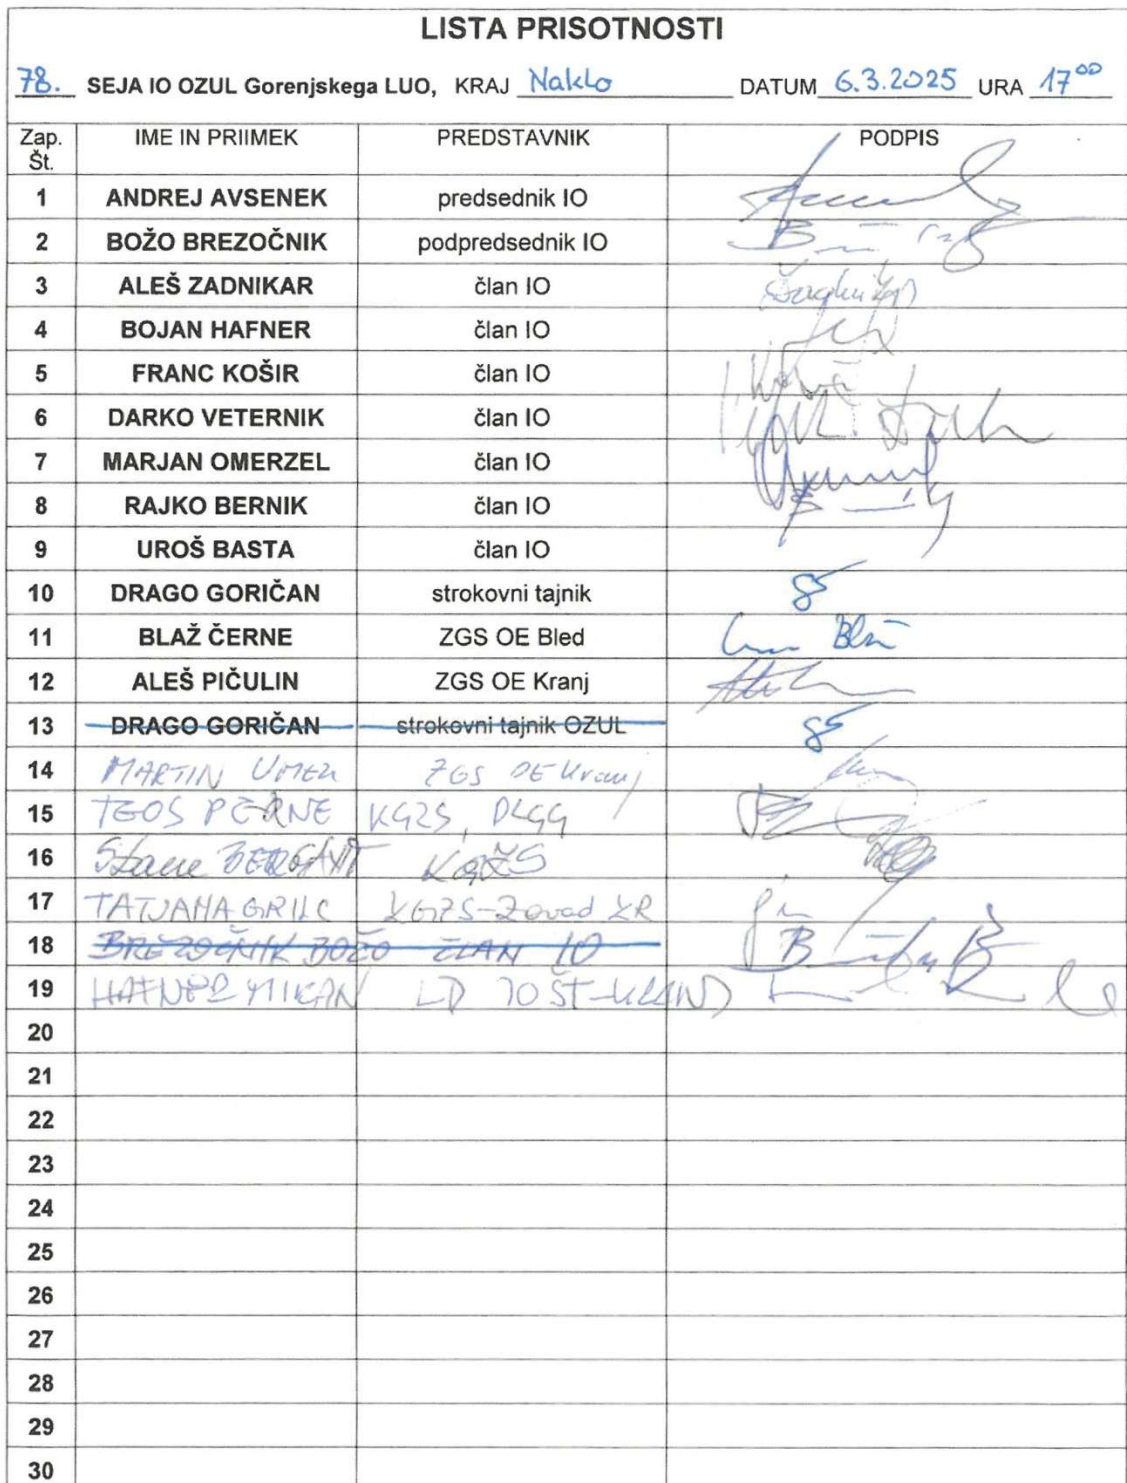 LISTA PRISOTNOSTI
78. SEJA IO OZUL Gorenjskega LUO, KRAJ Naklo DATUM 6.3.2025 URA 17⁰⁰
Zap. Št. IME IN PRIIMEK PREDSTAVNIK PODPIS
1 ANDREJ AVSENEK predsednik IO
2 BOŽO BREZOČNIK podpredsednik IO
3 ALEŠ ZADNIKAR član IO
4 BOJAN HAFNER član IO
5 FRANC KOŠIR član IO
6 DARKO VETERNIK član IO
7 MARJAN OMERZEL član IO
8 RAJKO BERNIK član IO
9 UROŠ BASTA član IO
10 DRAGO GORIČAN strokovni tajnik
11 BLAŽ ČERNE ZGS OE Bled
12 ALEŠ PIČULIN ZGS OE Kranj
13 DRAGO GORIČAN strokovni tajnik OZUL
14 MARTIN UMEK ZGS OE Kranj
15 PERNE KGZS,
16 Stane KGZS
17 TATJANA GRILC KGZS-Zavod KR
18 BREZOČNIK BOŽO ČLAN IO
19 HAFNER LD JOŠT-KRANJ
20
21
22
23
24
25
26
27
28
29
30